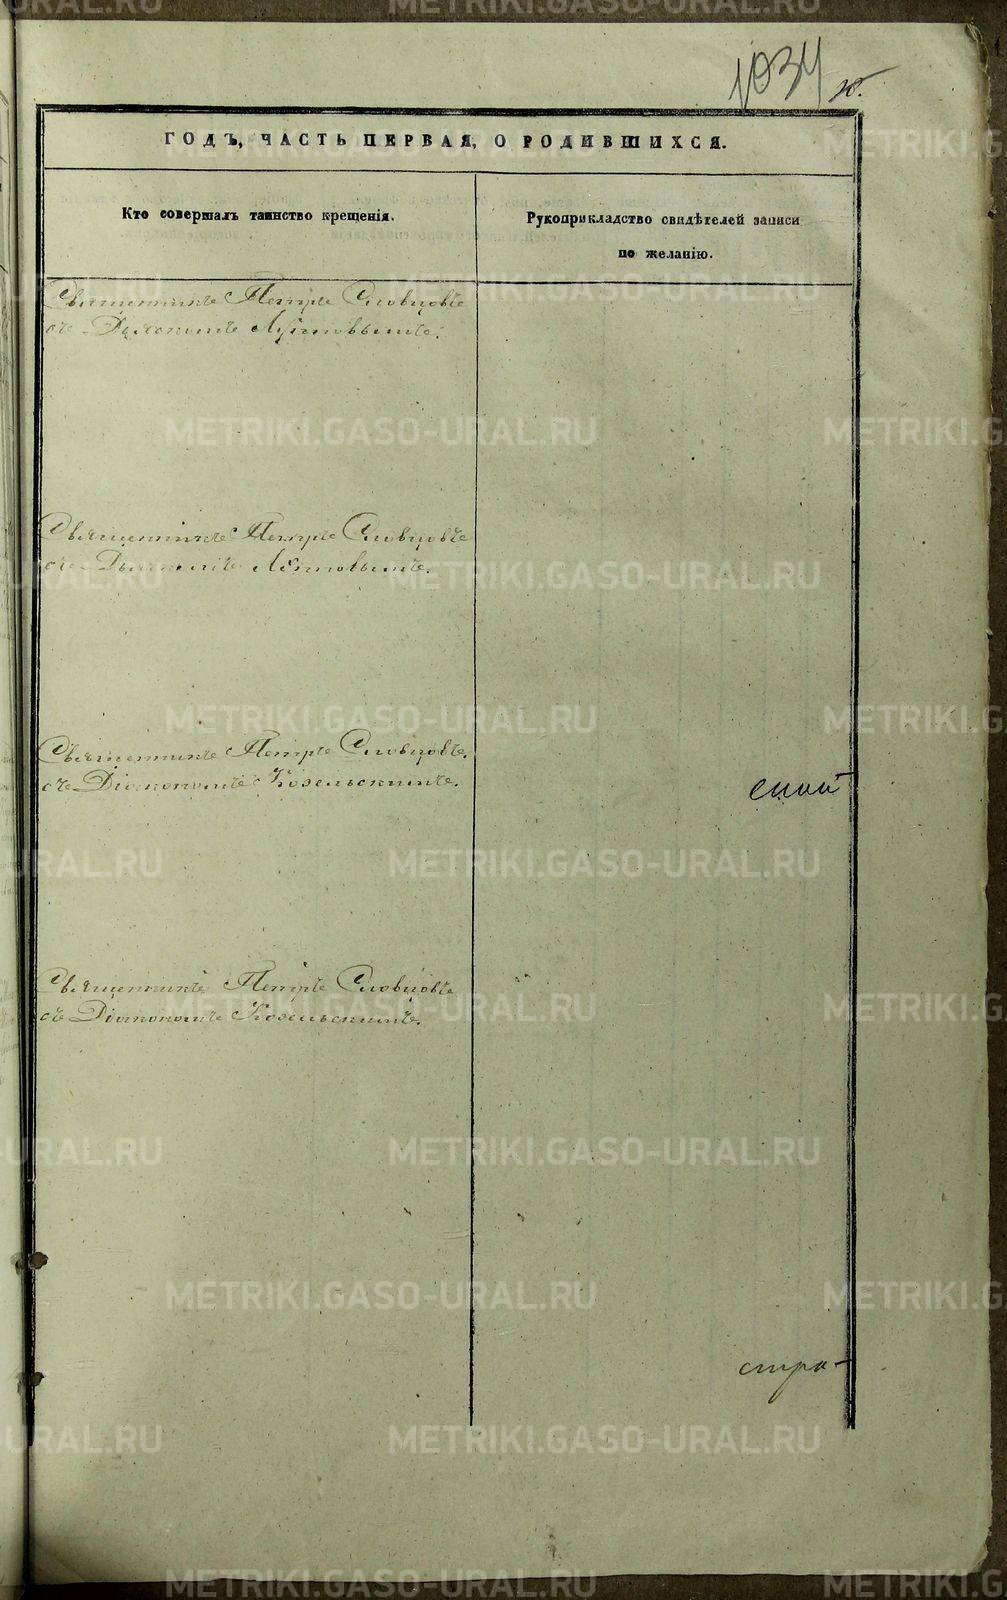 1034
ГОДЪ, ЧАСТЬ ПЕРВАЯ, О РОДИВШИХСЯ.
Кто совершалъ таинство крещенія.
Рукоприкладство свидѣтелей записи
по желанію.
Священникъ Петръ Словцовъ
съ Дьякономъ
Священникъ Петръ Словцовъ
съ Дьякономъ
Священникъ Петръ Словцовъ.
съ Діакономъ Козельскимъ.
Священникъ Петръ Словцовъ
съ Діакономъ Козельскимъ.
METRIKI.GASO-URAL.RU